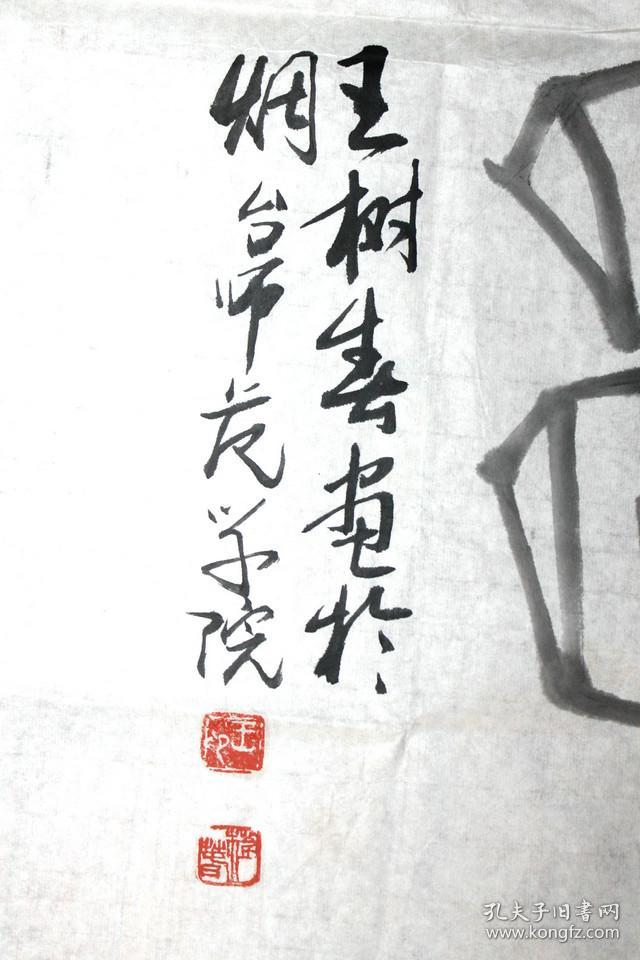 王树春画于
烟台师范学院
王印
树春
孔夫子旧书网
www.kongfz.com